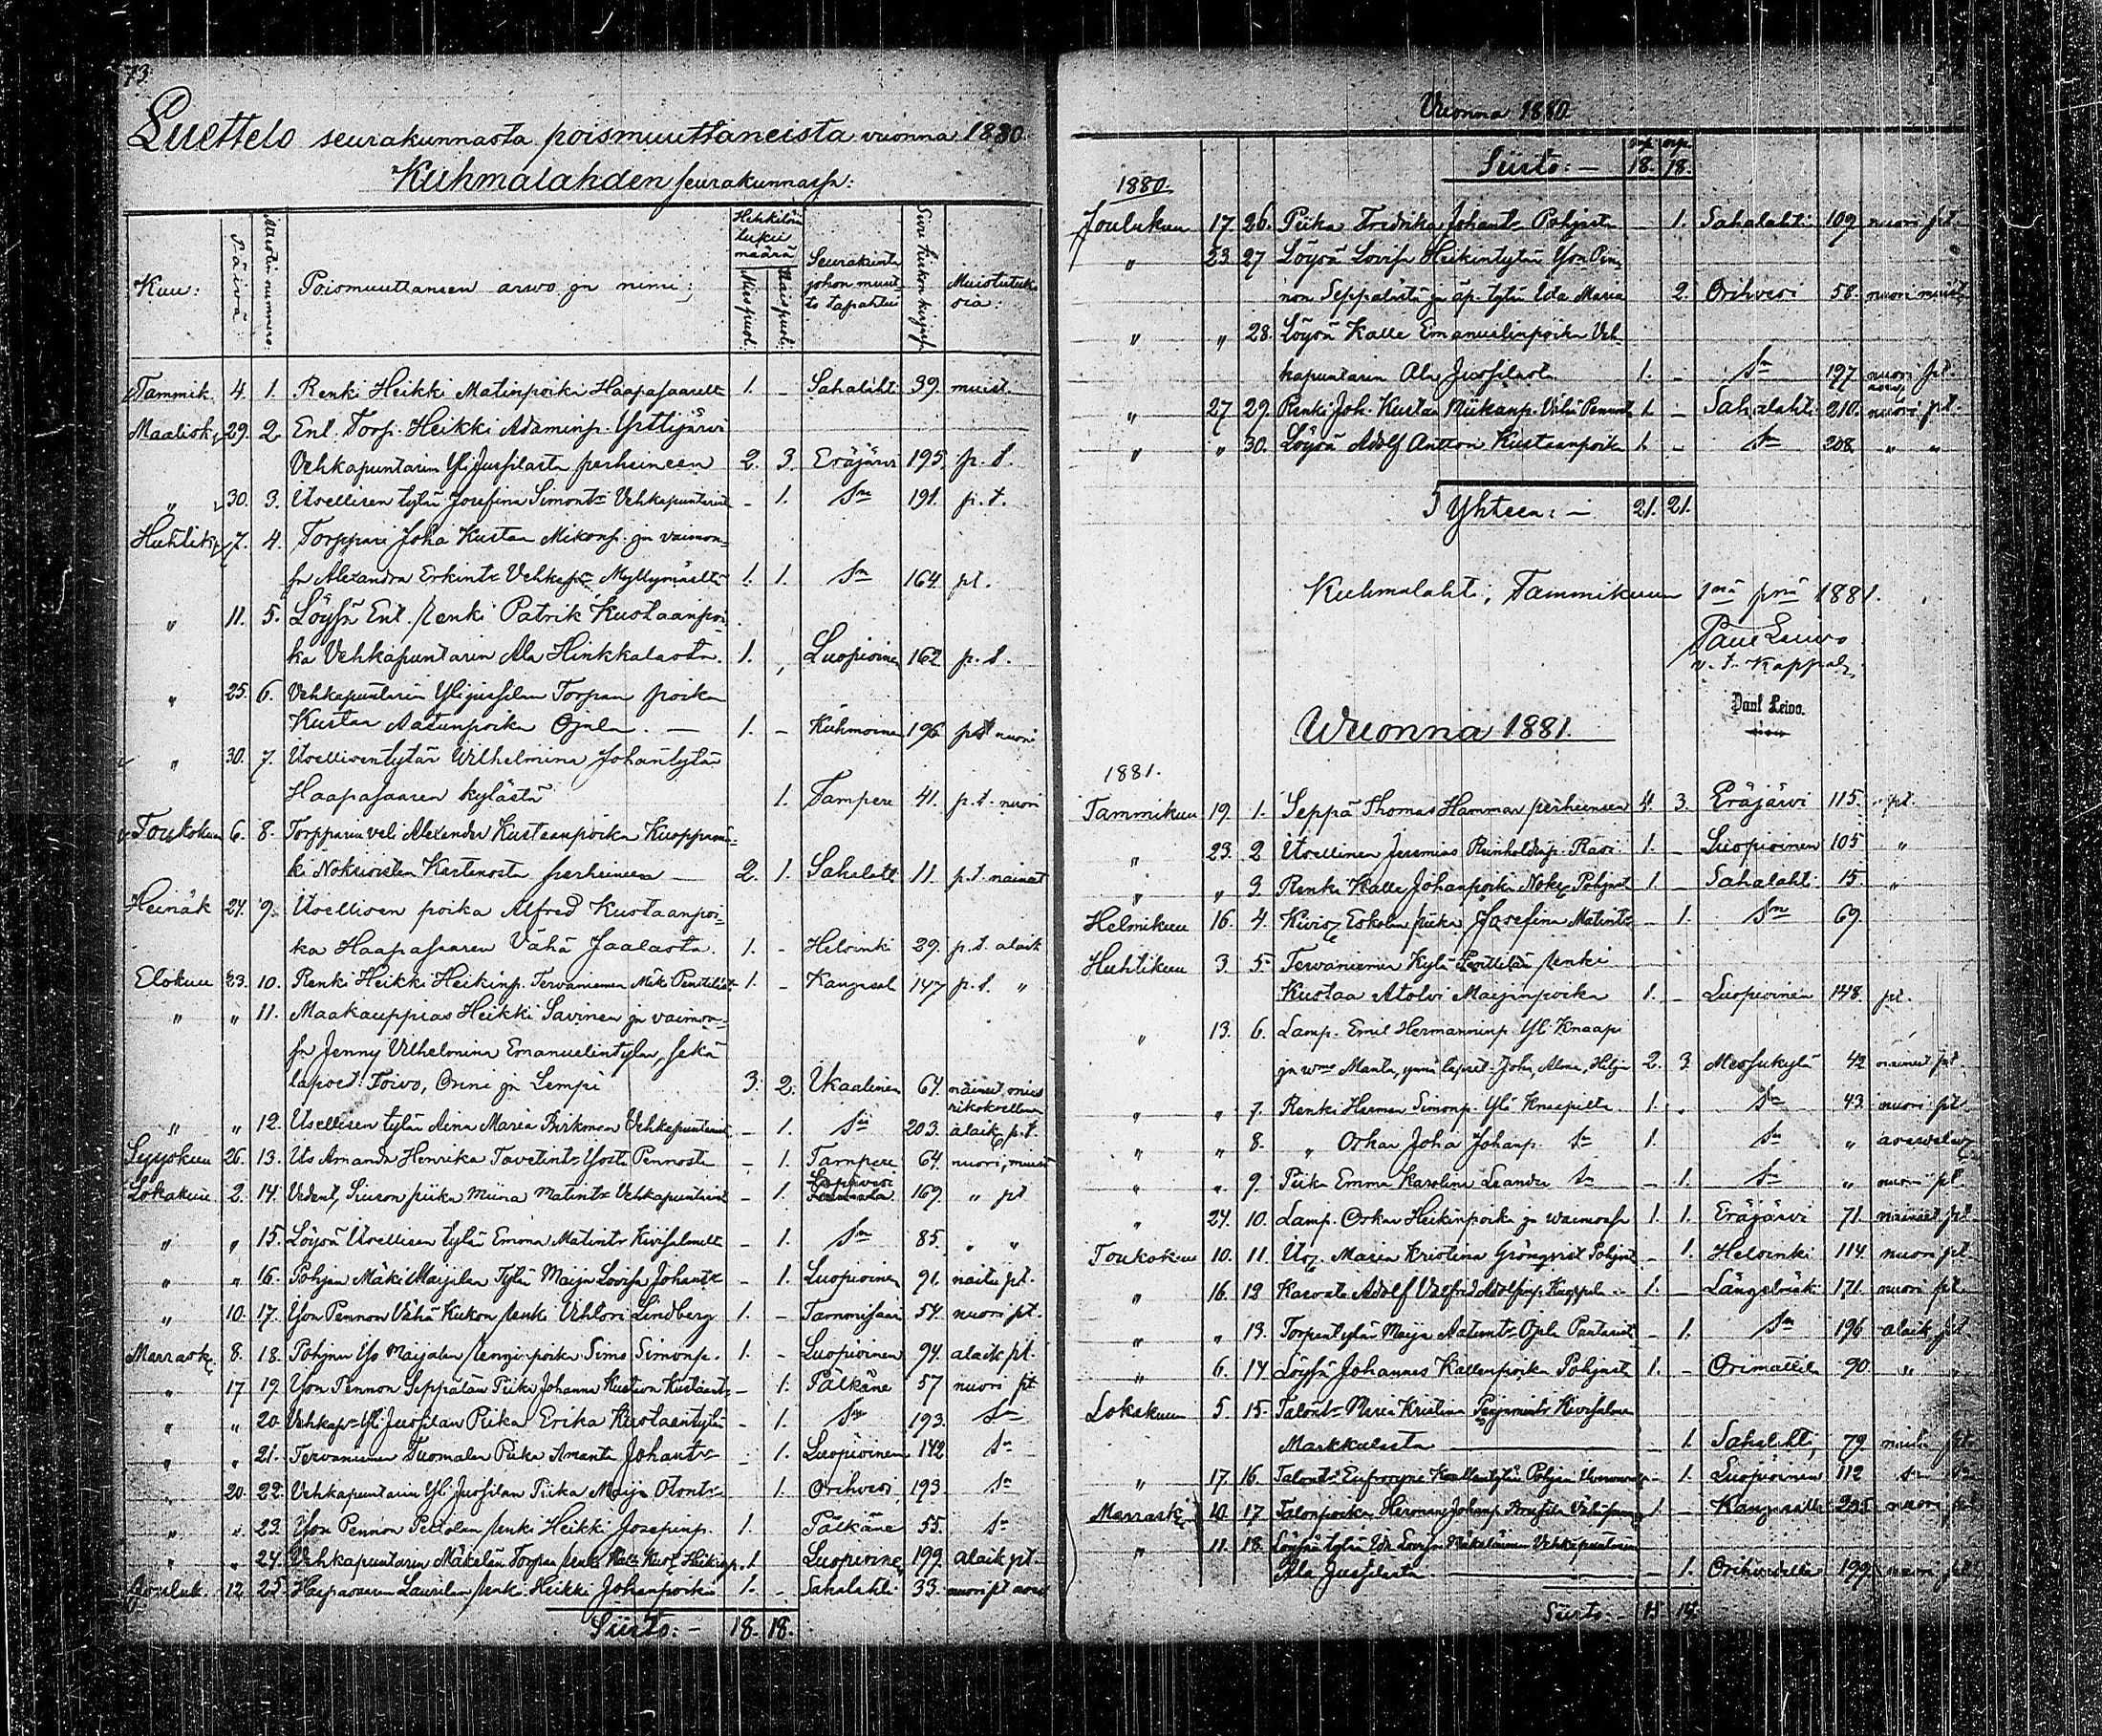 73.
Luettelo seurakunnasta poismuuttaneista vuonna 1880.
Kuhmalahden seurakunnassa:
Kuu: Päivä Muistin numero: Poismuuttaneen arwo ja nimi; Henkilön luku määrä Miespuoli: Vaispuoli: Seurakunta johon muutto tapahtui Sivu kirkon kirjassa Muistutuksia:
Tammik. 4. 1. Renki Heikki Matinpoika Haapasaarelta 1. - Sahalahti 39. muist.
Maalisk. 29. 2. Ent. Torp. Heikki Adaminp. Yrttijärvi
Vehkapuntarin Yli Jussilasta perheineen 2. 3. Eräjärvi 195. p. t.
" 30. 3. Itsellisen tytär Josefina Simont: Vehkapuntarista - 1. Sm 191. p. t.
Huhtik. 7. 4. Torppari Joha Kustaa Mikonp. ja vaimon-
sa Alexandra Erkint: Vehkap: Myllymäeltä 1. 1. Sm 164. pt.
" 11. 5. Löysä Ent. renki Patrik Kustaanpoi-
ka Vehkapuntarin Ala Hinkkalasta. 1. Luopioinen 162 p. t.
" 25. 6. Vehkapuntarin Ylijussilan Torpan poika
Kustaa Aatunpoika Ojala. — 1. - Kuhmoinen 196 pt nuori
" 30. 7. Itsellisentytär Wilhelmina Johantytär
Haapasaaren kylästä 1. Tampere 41. p. t. nuori
Toukokuu 6. 8. Torpparin veli Alexander Kustaanpoika
ki perheineen — 2. 1. Sahalahti 11. p. t. naineet
Heinäk 24. 9. Itsellisen poika Alfred Kustaanpoi-
ka Haapasaaren Vähä Jaalasta. 1. - Helsinki 29. p. t. alaik
Elokuu 23. 10. Renki Heikki Heikinp. Tervaniemen Mäki Penttilästä 1. - Kangasal 147 p. t. "
" " 11. Maakauppias Heikki Savinen ja vaimon-
sa Jenny Vilhelmina Emanuelintytär, sekä
lapset: Toivo, Onni ja Lempi 3. 2. Ikaalinen 64. naineet
" " 12. Itsellisen tytär Aina Maria Birkman Vehkapuntarista - 1. Sm 203. alaik p. t.
Syyskuu 26. 13. Its Amanda Henrika Tavetint: Ysosta Pennosta - 1. Tampere 64. nuori, muist
Lokakuu 2. 14. Siuron piika Miina Matint: Vehkapuntarista - 1. 169. " pt
" " 15. Löysä Itsellisen tytär Emma Matint: Kivisalmelta - 1. Sm 85. " "
" " 16. Pohjan Mäki Maijalan Tytär Maija Lovisa Johant: - 1. Luopioinen 91. naitu pt.
" 10. 17. Yson Pennon Vähä Kukon renki Vihtori Lindberg 1. - Tammisaari 54. nuori pt.
Marrask. 8. 18. Pohjan Iso Maijalan renginpoika Simo Simonp. 1. - Luopioinen 94. alaik pt.
" 17 19. Yson Pennon Seppälän Piika Johanna Kustaant: - 1. Pälkäne 57 nuori pt
" " 20. Vehkap: Yli Jussilan Piika Erika Kustaantytär - 1. Sm 193. Sm
" " 21. Tervaniemen Tuomalan Piika Amanta Johant: - 1. Luopioinen 142 Sm
" 20. 22. Vehkapuntarin Yli Jussilan Piika Maija Otont: 1. Orihvesi 193. Sm
" " 23. Yson Pennon renki Heikki Josepinp. 1. Pälkäne 55. Sm
" " 24. Vehkapuntarin Mäkelän Torpan renki Heikinp. 1 Luopioinen 199. alaik pt.
Jouluk. 12 25. Haapasaaren Laurilan renki Heikki Johanpoika 1. - Sahalahti 33. nuori pt
Siirto:- 18. 18.
Vuonna 1880
mp. vp.
Siirto:- 18. 18.
1880.
Joulukuu 17. 26. Piika Fredrika Johant: Pohjasta 1. Sahalahti 109 nuori pt.
" 23 27 Löysä Lovisa Heikintytär Yson Pen-
non Seppälästä ja äp. tytär Ida Maria 2. Orihvesi 58. nuori muist
" " 28. Löysä Kalle Emanuelinpoika Veh-
kapuntarin Ala Jussilasta 1. - Sm 197 nuori pt.
" 27 29. Renki Joh. Kustaa Miikanp. Vähä Pennosta 1. - Sahalahti 210. nuori pt.
" " 30. Löysä Adolf Anton Kustaanpoika 1. - Sm 208. " "
Yhteen:- 21. 21.
Kuhmalahti, Tammikuun 1nä pnä 1881.
Paul Leivo
v. t. Kappal.
Paul Leivo.
Wuonna 1881.
1881.
Tammikuu 19. 1. Seppä Thomas Hammar perheineen 4. 3. Eräjärvi 115. pt.
" 23. 2 Itsellinen Jeremias Reinholdinp. Rasi. 1. - Luopioinen 105 "
" " 3. Renki Kalle Johanpoika Pohjast 1. - Sahalahti 15. "
Helmikuu 16. 4. Kivis. Eskolan piika Josefina Matint: - 1. Sm 69.
Huhtikuu 3. 5. Tervaniemen Kylä Penttilän renki
Kustaa Atolvi Maijanpoika 1. - Luopioinen 148. pt.
" 13. 6. Lamp. Emil Hermanninp Yli Knaapi
ja wmo Manta, ynnä lapset Joha, Alma, Hilja 2. 3. Messukylä 42 naineet pt.
" " 7. Renki Herman Simonp. Yli Knaapilta 1. Sm 43. nuori pt.
" " 8. " Oskar Joha Johanp. Sm 1. Sm "
" " 9. Piika Emma Karolina Leander Sm - 1. Sm " nuori pt.
" 24. 10. Lamp. Oskar Heikinpoika ja waimonsa 1. 1. Eräjärvi 71. naineet pt
Toukokuu 10. 11. Its. Maria Kristina Grönqvist Pohjast - 1. Helsinki 114. nuori pt
" 16. 12 Adolf Valfrid Adolfinp. 1. - Längelmäki 171. nuori pt.
" " 13. Torpantytär Maija Aatunt: Ojala - 1. Sm 196 alaik pt.
" 6. 14 Löysä Johannes Kallenpoika Pohjasta 1. - Orimattila 90. " "
Lokakuu 5. 15. Talont: Maria Kristina Penjamint: Kivisalmen
Markkulasta — 1. Sahalahti, 79.
" 17. 16. Talont: Eufrosyne Kallentytär Pohjan - 1. Luopioinen 112
Marrask. 10. 17 Talonpoika Herman Johanp. 1 - Kangasalla nuori pt
" 11. 18. Löysä tytär Ida Lovisa Vehkapuntarin
Ala Jussilasta — 1. Orihvedellä 199. nuori pt
Siirto:- 15 14.